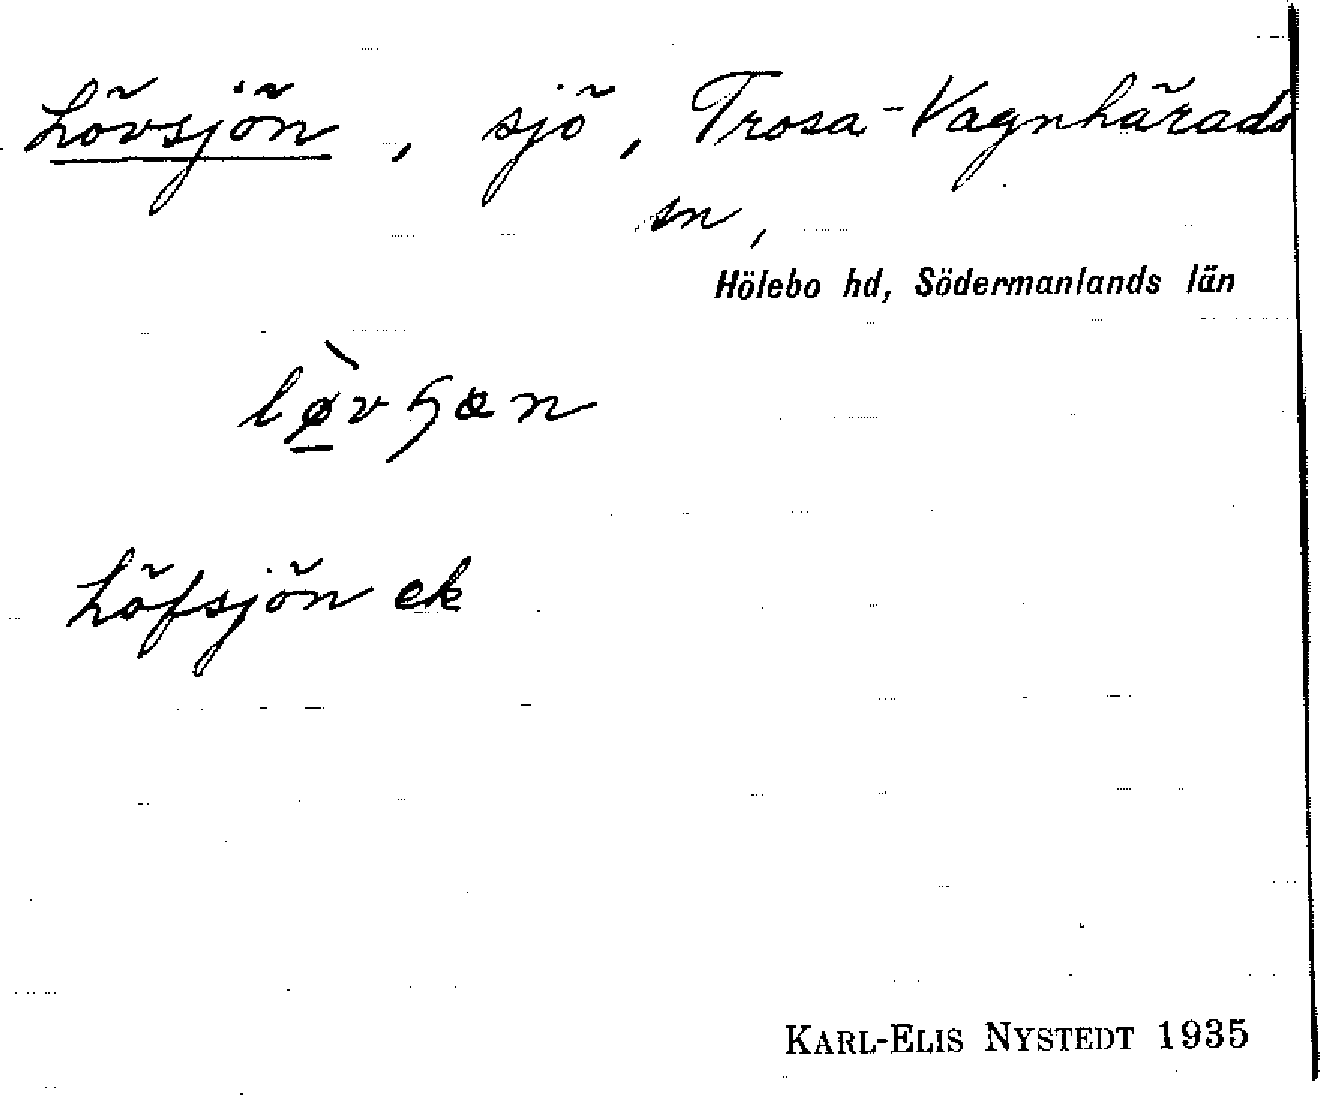 Lövsjön, sjö, Trosa-Vagnhärads
sn,
Hölebo hd, Södermanlands län
Löfsjön ek
KARL-ELIS NYSTEDT 1935